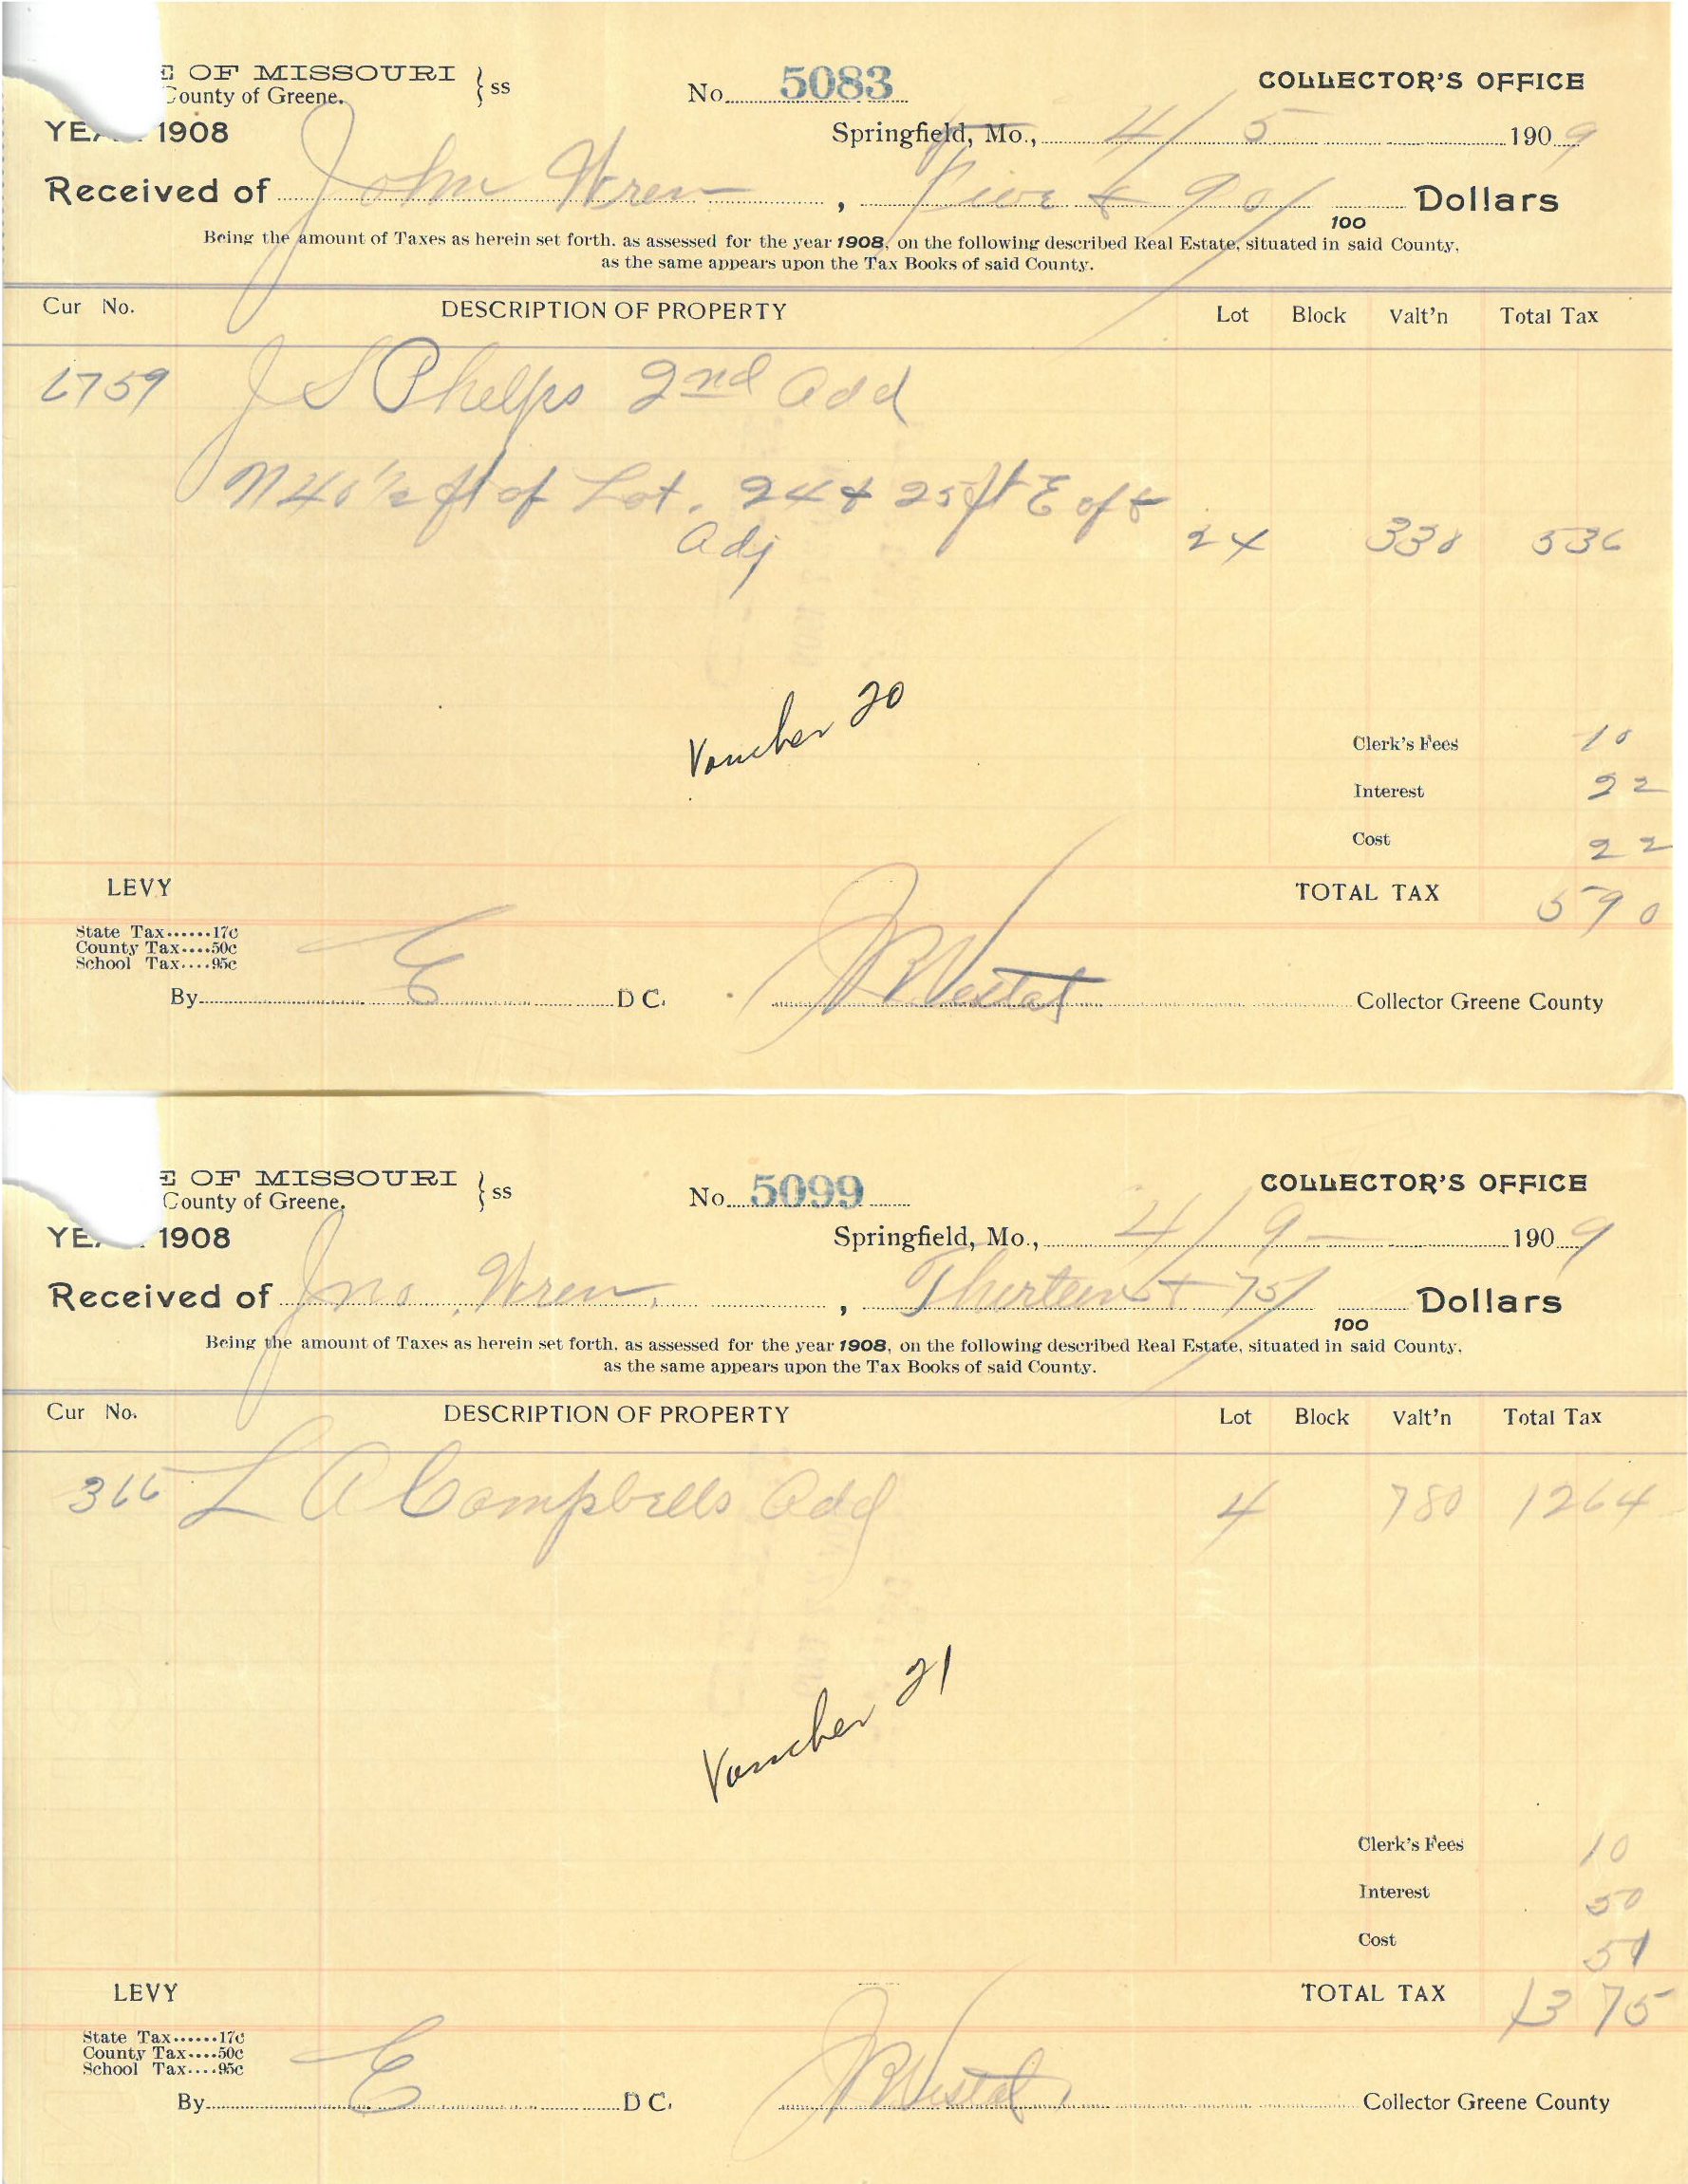 E OF MISSOURI } ss No. 5083 COLLECTOR'S OFFICE
County of Greene.
YEA 1908 Springfield, Mo., 4/5 1909
Received of John Wren, Five & 90/100 Dollars
Being the amount of Taxes as herein set forth, as assessed for the year 1908, on the following described Real Estate, situated in said County,
as the same appears upon the Tax Books of said County.
Cur No. DESCRIPTION OF PROPERTY Lot Block Valt'n Total Tax
6759 J S Phelps 2nd Add
N 40 1/2 ft of Lot. 24 & 25 ft E of &
Adj 24 338 536
Voucher 20
Clerk's Fees 10
Interest 22
Cost 22
LEVY TOTAL TAX 590
State Tax......17c
County Tax....50c
School Tax....95c
By E D C. Collector Greene County
E OF MISSOURI } ss No. 5099 COLLECTOR'S OFFICE
County of Greene.
YEA 1908 Springfield, Mo., 4/9 1909
Received of Jno. Wren, Thirteen + 75/100 Dollars
Being the amount of Taxes as herein set forth, as assessed for the year 1908, on the following described Real Estate, situated in said County,
as the same appears upon the Tax Books of said County.
Cur No. DESCRIPTION OF PROPERTY Lot Block Valt'n Total Tax
366 L A Campbells Add 4 780 1264
Voucher 21
Clerk's Fees 10
Interest 50
Cost 51
LEVY TOTAL TAX 1375
State Tax......17c
County Tax....50c
School Tax....95c
By E D C. Collector Greene County